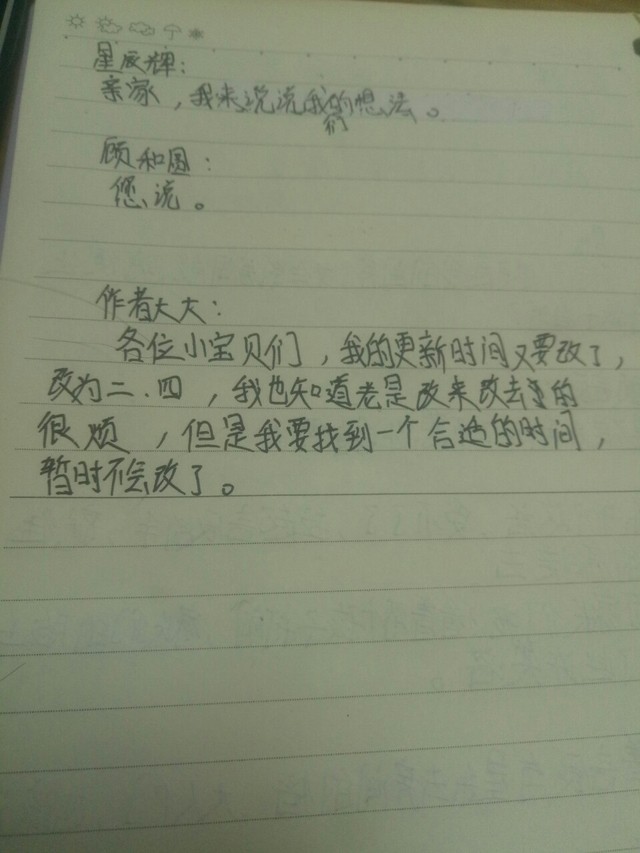 星辰辉：
亲家，我来说说我们的想法。
顾和国：
您说。
作者大大：
各位小宝贝们，我的更新时间又要改了，
改为二、四，我也知道老是改来改去真的
很烦，但是我要找到一个合适的时间，
暂时不会改了。